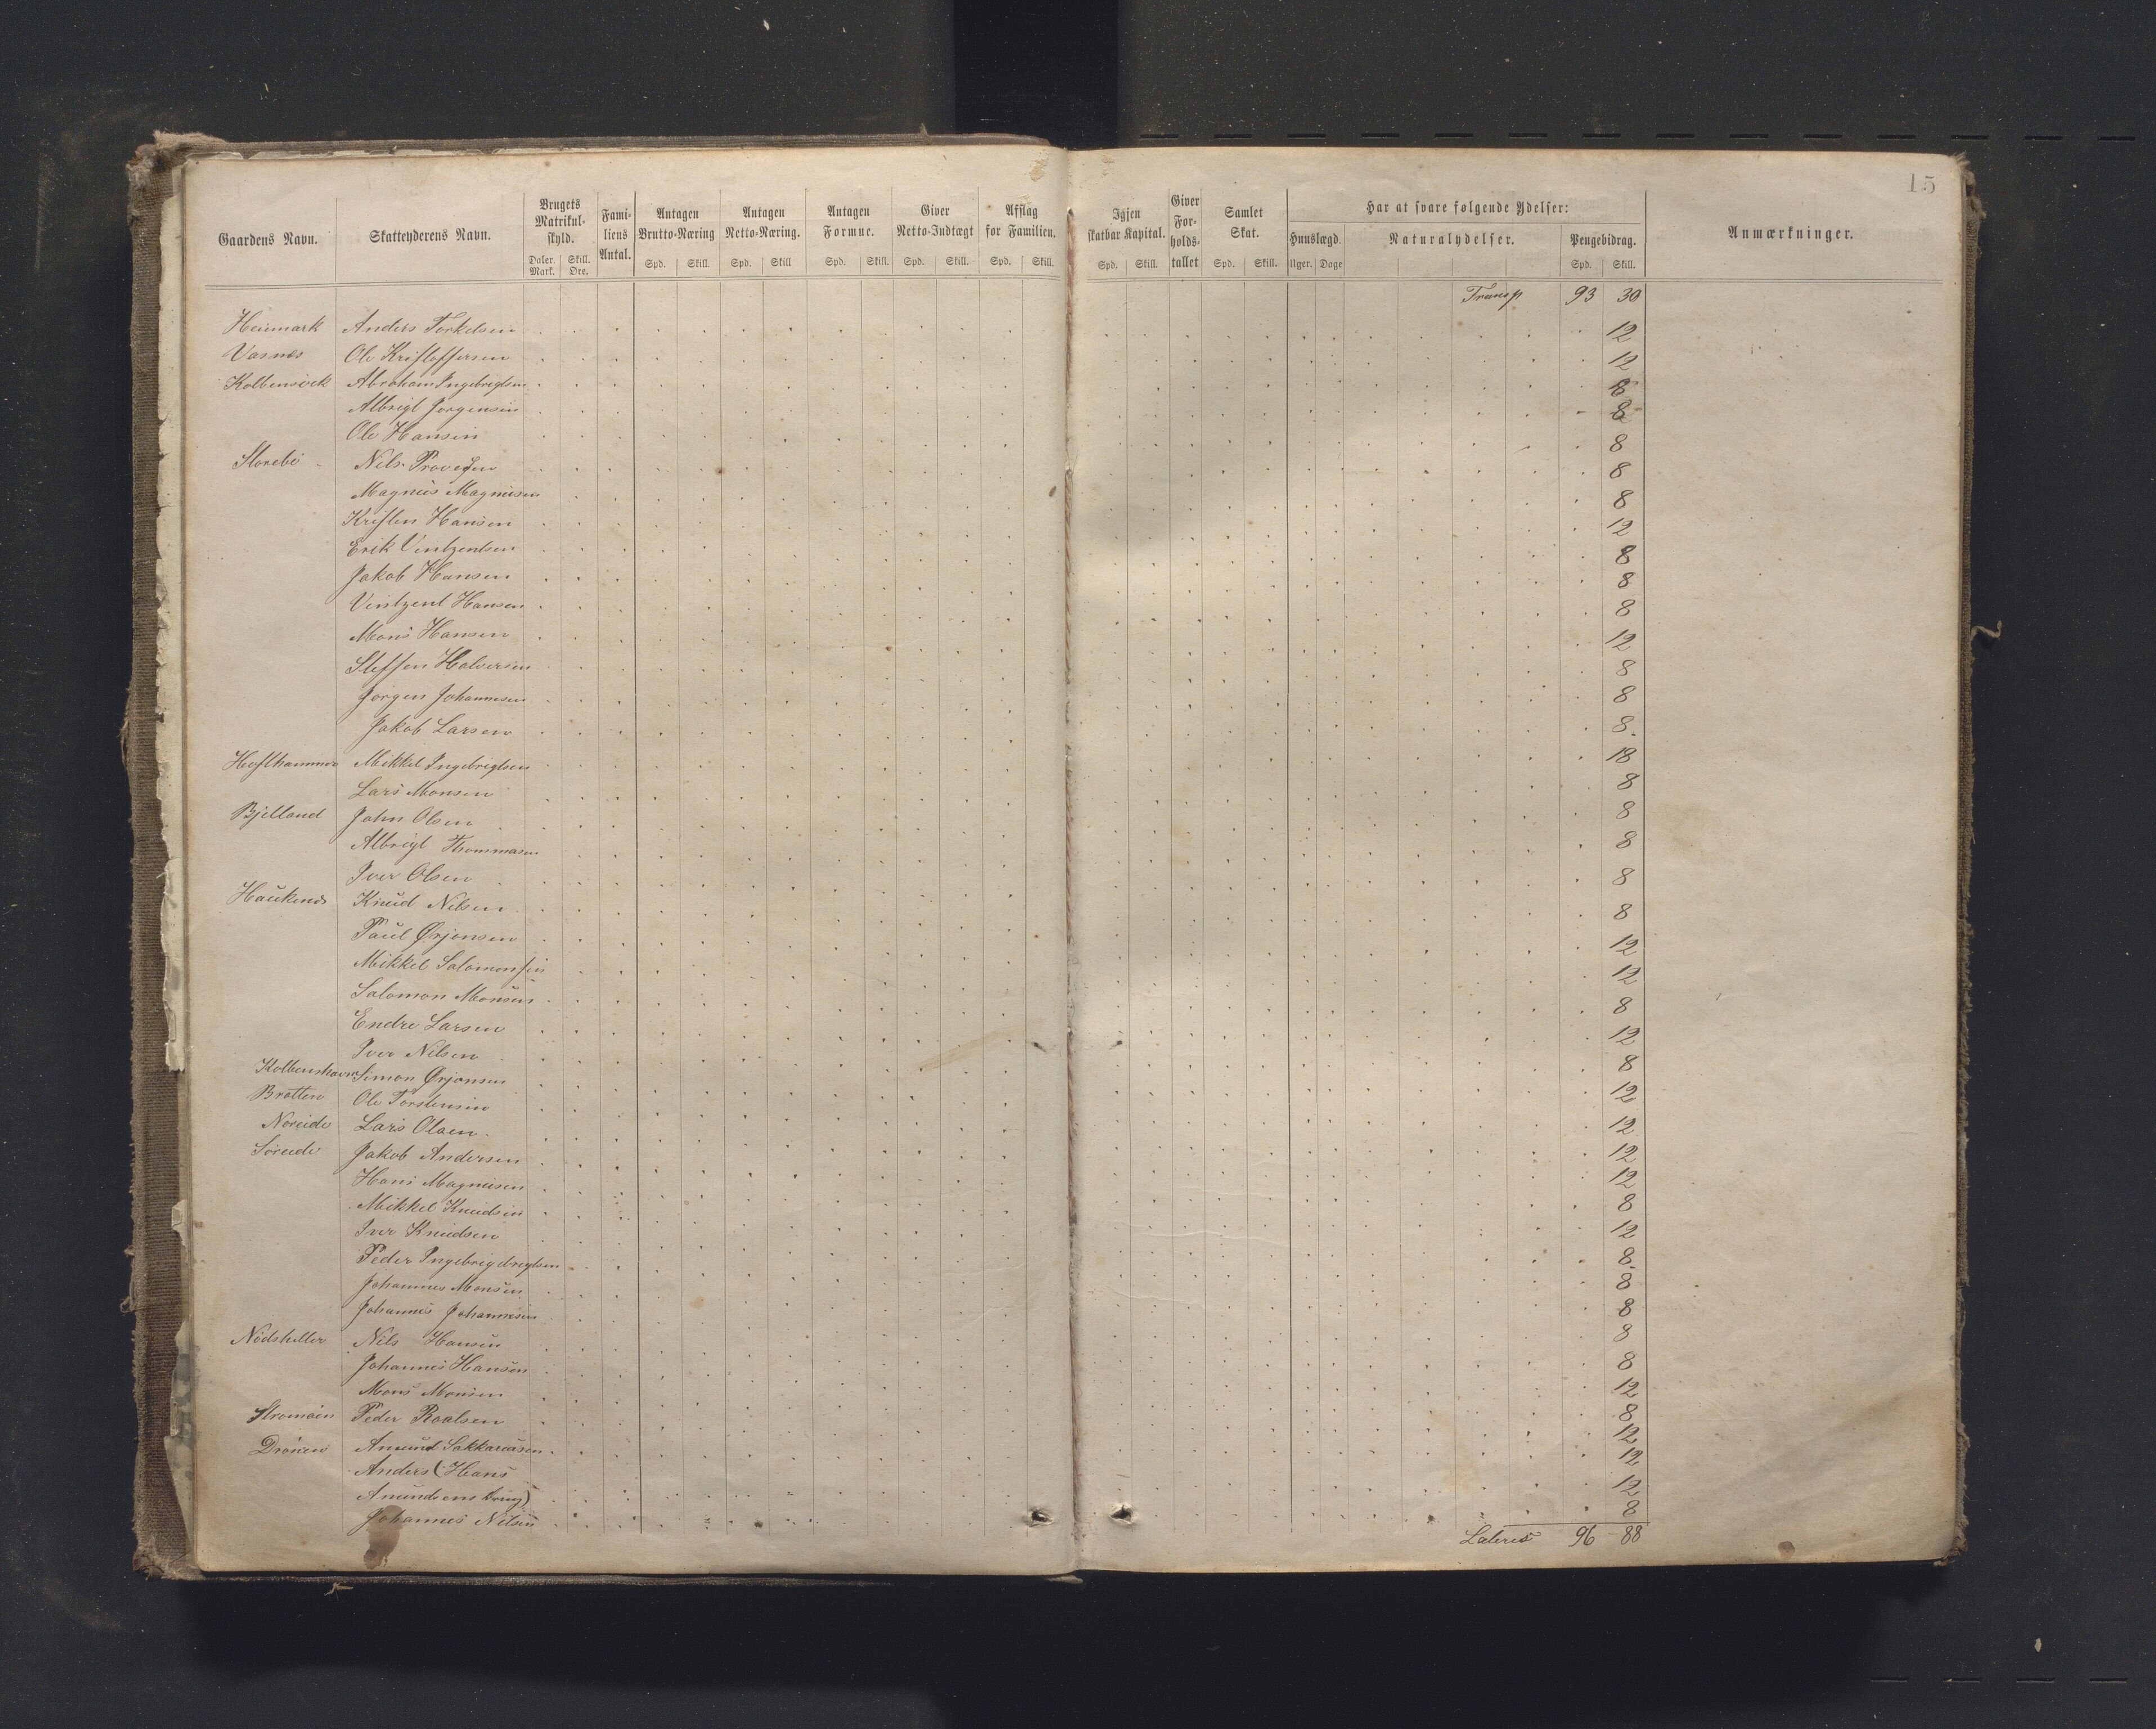 15
Gaardens Navn. Skatteyderens Navn. Brugets Matrikul-skyld. Fami-liens Antal. Antagen Brutto-Næring Antagen Netto-Næring. Antagen Formue. Giver Netto-Indtægt Afslag for Familien. Igjen skatbar Kapital. Giver For-holds-tallet Samlet Skat. Har at svare følgende Ydelser: Anmærkninger.
Huuslægd. Naturalydelser. Pengebidrag.
Daler. Mark. Skill. Øre. Spd. Skill. Spd. Skill Spd. Skill. Spd. Skill. Spd. Skill. Spd. Skill. Spd. Skill. Uger. Dage Spd. Skill.
Transp 93 30
Heimark Anders Torkelsen 12
Vasnes Ole Kristoffersen 12
Kolbensvik Abraham Ingebrigtsen 8
Albrigt Jørgensen 8
Ole Hansen 8
Storebø Nils Provesen 8
Magnus Magnusen 8
Kristen Hansen 12
Erik Vintzentsen 8
Jakob Hansen 8
Vintzent Hansen 8
Mons Hansen 12
Steffen Halversen 8
Jørgen Johannesen 8
Jakob Larsen 8.
Hesthammer Mikkel Ingebrigtsen 18
Lars Monsen 8
Bjelland John Olsen 8
Albrigt Thommasen 8
Iver Olsen 8
Haukenes Knud Nilsen 8
Paul Ørjansen 12
Mikkel Salomonsen 12
Salomon Monsen 8
Endre Larsen 12
Iver Nilsen 8
Kolbenshavn Simon Ørjansen 12
Bratten Ole Torstensen 12
Noreide Lars Olsen 12
Søreide Jakob Andersen 12
Hans Magnusen 8
Mikkel Knudsen 12
Iver Knudsen 8.
Peder Ingebrigebrigtsen 8
Johannes Monsen 8
Johannes Johannesen 8
Nødsteller Nils Hansen 8
Johannes Hansen 12
Mons Monsen 8
Strømøen Peder Roalsen 12
Drønen Amund Sakkariasen 12
Anders (Hans
Amundsens brug) 12
Johannes Nilsen 8
Lateris 96 - 88